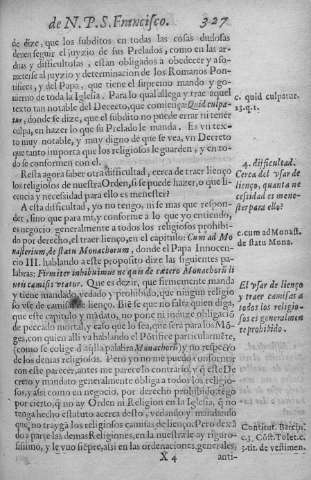 de N. P. S. Francisco. 327
de dize, que los subditos en todas las cosas dudosas
deven seguir el juyzio de sus Prelados, como en las ar-
duas y dificultosas, estan obligados a obedecer y aso-
meterse al juyzio y determinacion de los Romanos Pon-
tifices, y del Papa, que tiene el supremo mando y go-
uierno de toda la Iglesia. Para lo qual allega y trae aquel
texto tan notable del Decreto, que comiença: Quid culpa-
tur, donde se dize, que el subdito no puede errar ni tener
culpa, en hazer lo que su Prelado le manda. Es vn tex-
to muy notable, y muy digno de que se vea, vn Decreto
que tanto importa que los religiosos le guarden, y en to-
do se conformen con el.
Resta agora saber otra dificultad, cerca de traer lienço
los religiosos de nuestra Orden, si se puede hazer, o que li-
cencia y necesidad para ello es menester?
A esta dificultad, yo no tengo, ni se mas que respon-
der, sino que para mi, y conforme a lo que yo entiendo,
es negocio generalmente a todos los religiosos prohibi-
do por derecho, el traer lienço, en el capitulo: Cum ad Mo
nasterium, de statu Monachorum, donde el Papa Innocen-
cio III. hablando a este proposito dize las siguientes pa-
labras: Firmiter inhibuimus ne quis de cætero Monachorum li
neis camisis vtatur. Que es dezir, que firmemente manda
y tiene mandado, vedado y prohibido, que ningun religio
so vse de camisas de lienço. Biē se que no falta quien diga,
que este capitulo y mādato, no pone ni induce obligaciō
de peccado mortal, y caso que lo sea, que sera para los Mō-
ges, con quien alli va hablando el Pōtifice particularmēte,
(como se colige d̄ aq̄lla palabra Monachorū) y no respecto
de los demas religiosos. Pero yo no me puedo conformar
con este parecer, antes me parece lo contrario, y q̄ este De
creto y mandato generalmente obliga a todos los religio-
sos, y assi como en negocio, por derecho prohibido, tēgo
por cierto, q̄ no ay Orden ni Religion en la Iglesia, q̄ no
tenga hecho estatuto acerca desto, vedando y mandando
que, no traygā los religiosos camisas de lienço. Pero dexā
do a parte las demas Religiones, en la nuestra le ay riguro-
sissimo, y le vuo siēpre, assi en las ordenaciones generales,
X 4 anti-
c. quid culpatur.
23. q. 1.
4. difficultad.
Cerca del vsar de
lienço, quanta ne
cesidad es mene-
ster para ello?
c. cum ad Monast.
de statu Mona.
El vsar de lienço
y traer camisas a
todos los religio-
sos es generalmen
te prohibido.
Constitut. Barcin.
c. 3. Cōst. Tolet. c.
3. tit. de vestimen.